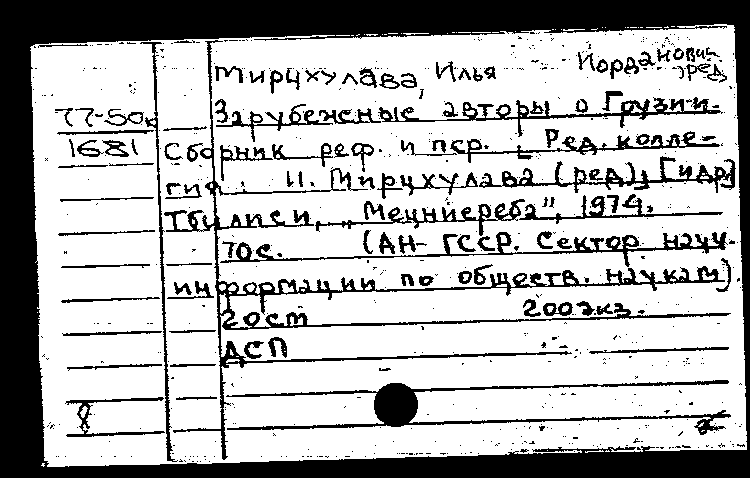 Мирцхулава, Илья Иорданович, ред.
77-50к Зарубежные авторы о Грузии.
1681 Сборник реф. и пер. [ Ред. колле-
гия: И. Мирцхулава (ред), [и др]
Тбилиси, „Мецниереба", 1974.
70с. (АН ГССР. Сектор науч.
информации по обществ. наукам)
20см 200экз.
ДСП
8